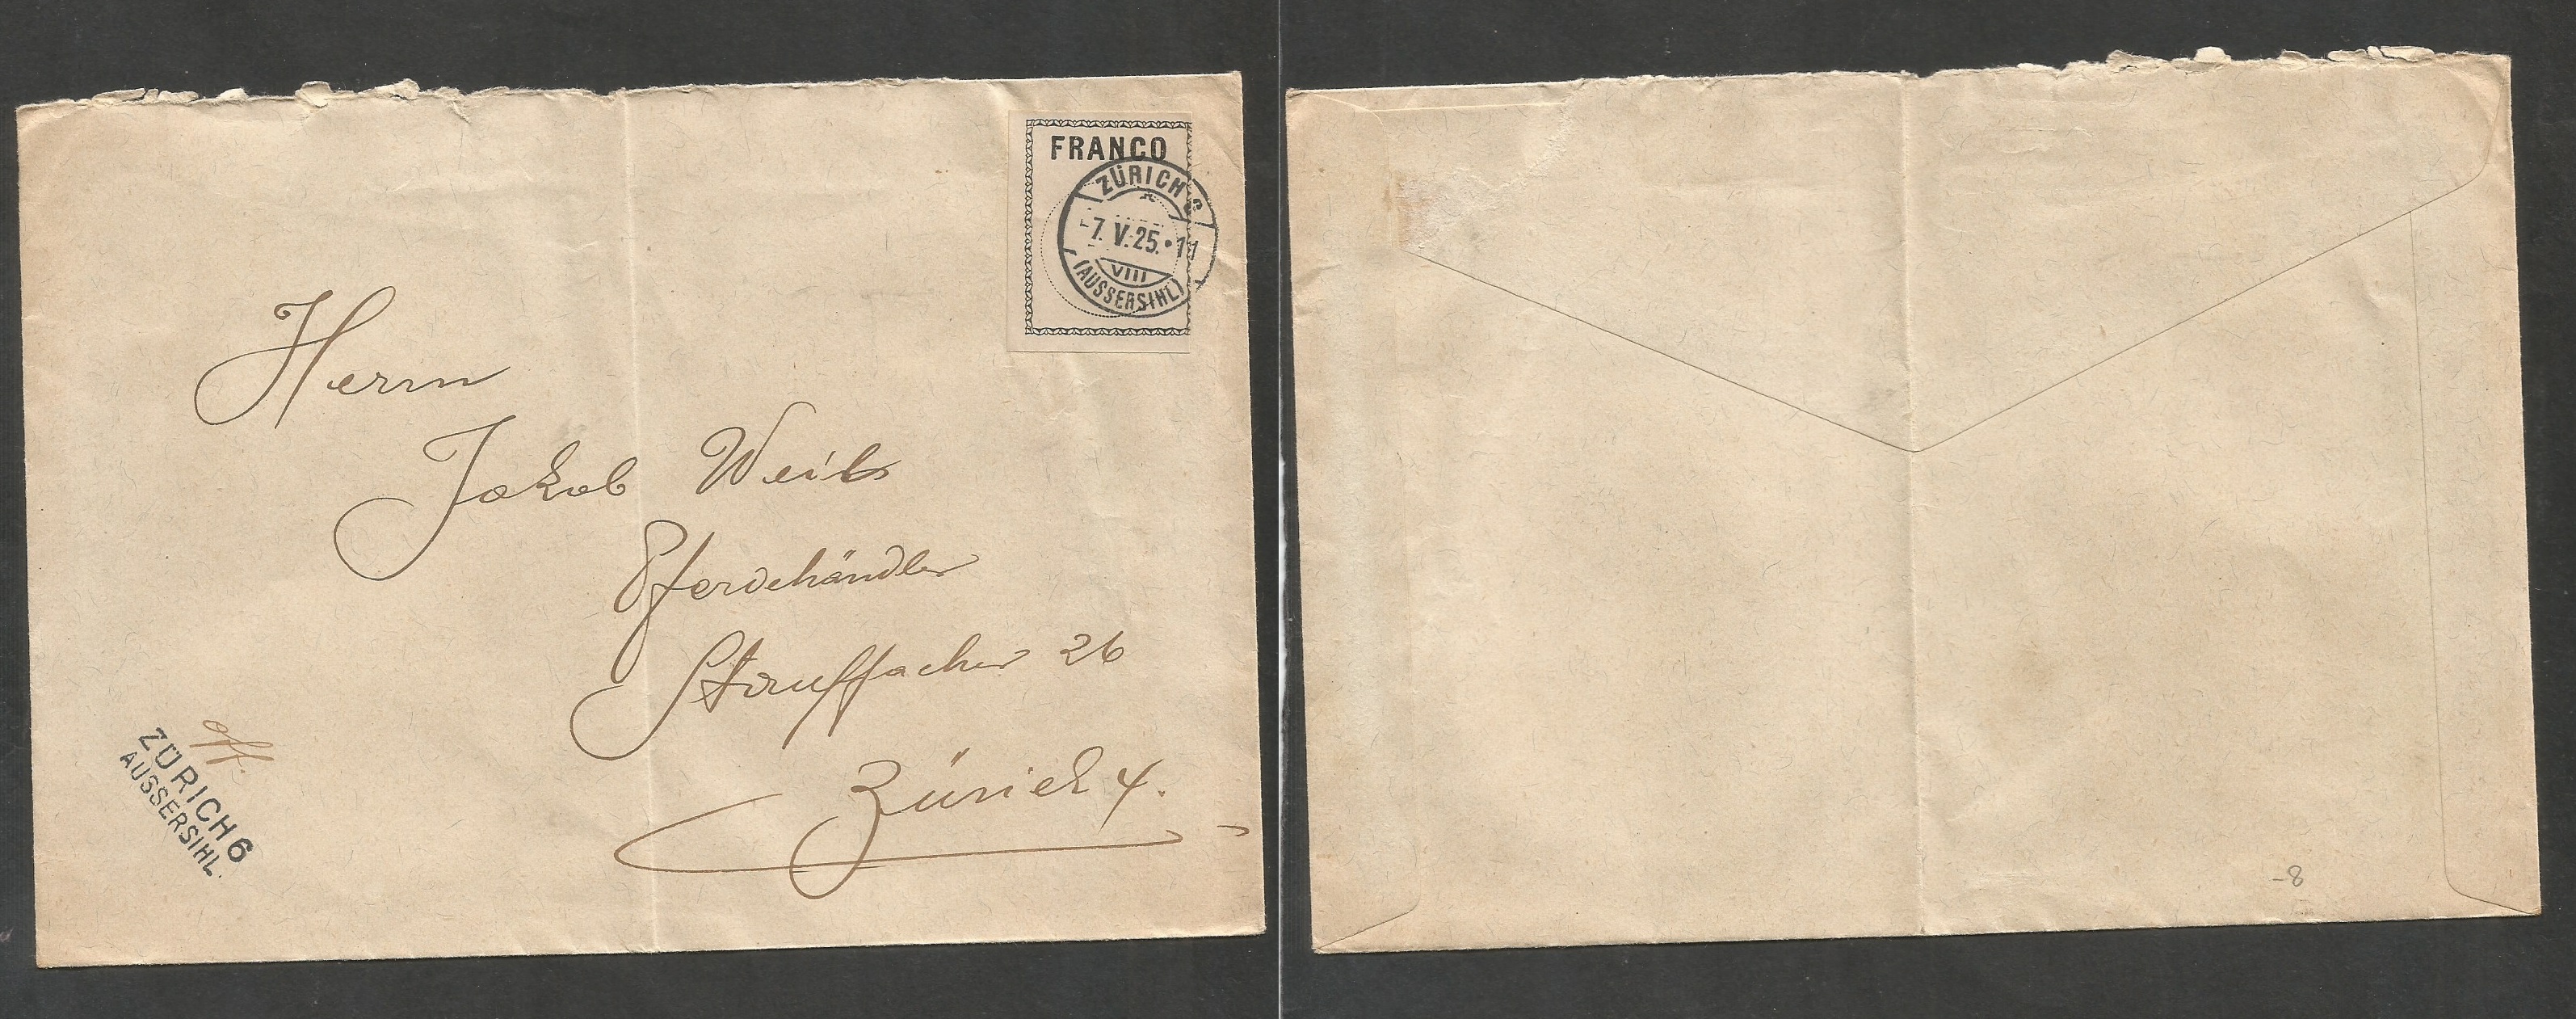 FRANCO
ZÜRICH 6
-7. V. 25.•11
VIII
(AUSSERSIHL)
Herrn
Jakob Weil
Pferdehändler
Stauffacher 26
Zürich 4.
off.
ZÜRICH 6
AUSSERSIHL.
-8